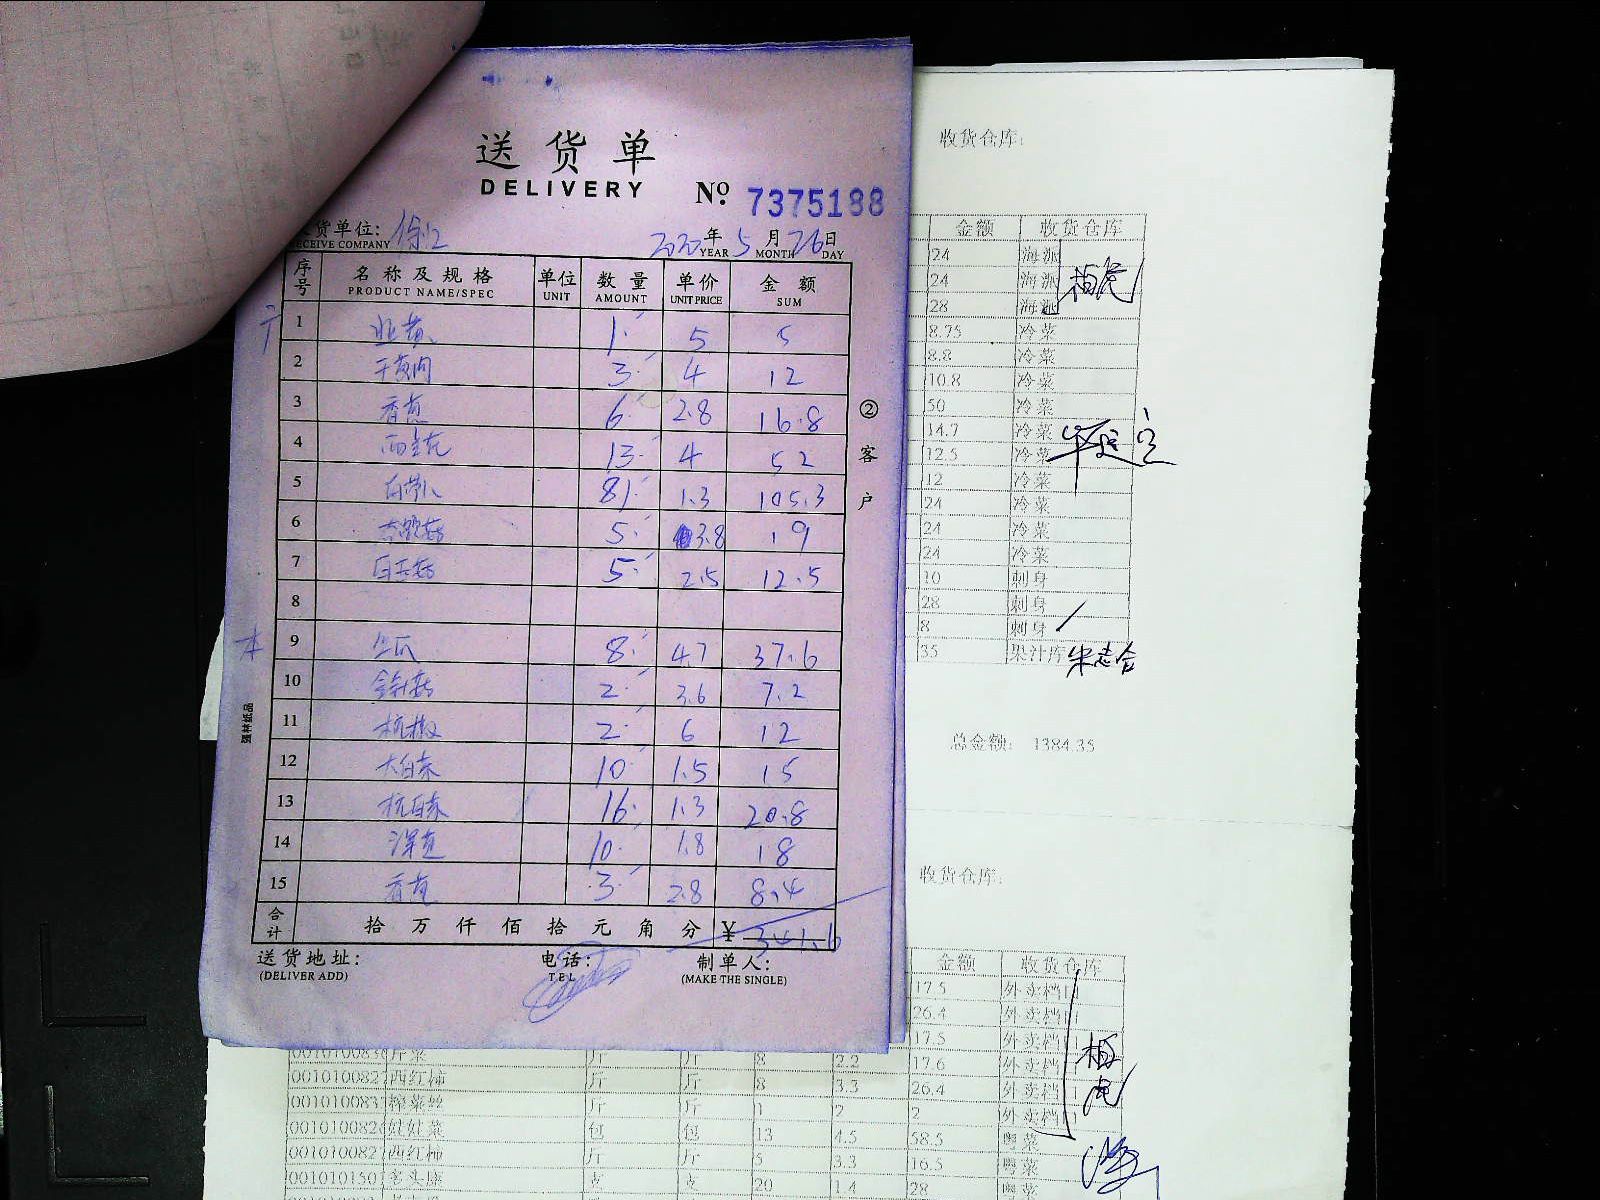 送货单
DELIVERY
No. 7375188
货单位: 徐汇
RECEIVE COMPANY
2020年5月26日
YEAR MONTH DAY
序号 名称及规格 单位 数量 单价 金额
PRODUCT NAME/SPEC UNIT AMOUNT UNIT PRICE SUM
1 韭黄 1 5 5
2 3 4 12
3 香葱 6 2.8 16.8
4 西兰花 13 4 52
5 81 1.3 105.3
6 杏鲍菇 5 3.8 19
7 白玉菇 5 2.5 12.5
8
9 8 4.7 37.6
10 金针菇 2 3.6 7.2
11 杭椒 2 6 12
12 大白菜 10 1.5 15
13 杭白菜 16 1.3 20.8
14 10 1.8 18
15 香葱 3 2.8 8.4
合计 拾万仟佰拾元角分 ¥341.6
送货地址: 电话: 制单人:
(DELIVER ADD) TEL (MAKE THE SINGLE)
②客户
强林纸品
收货仓库:
金额 收货仓库
24 海派
24 海派
28 海派
8.75 冷菜
8.8 冷菜
10.8 冷菜
50 冷菜
14.7 冷菜
12.5 冷菜
12 冷菜
24 冷菜
24 冷菜
24 冷菜
10 刺身
28 刺身
8 刺身
35 果汁库 朱志合
总金额: 1384.35
收货仓库:
金额 收货仓库
17.5 外卖档口
26.4 外卖档口
17.5 外卖档口
芹菜 斤 斤 8 2.2 17.6 外卖档口
001010082 西红柿 斤 斤 8 3.3 26.4 外卖档口
001010083 榨菜丝 斤 斤 1 2 2 外卖档口
001010082 娃娃菜 包 包 13 4.5 58.5 粤菜
001010082 西红柿 斤 斤 5 3.3 16.5 粤菜
001010150 20 1.4 28 粤菜